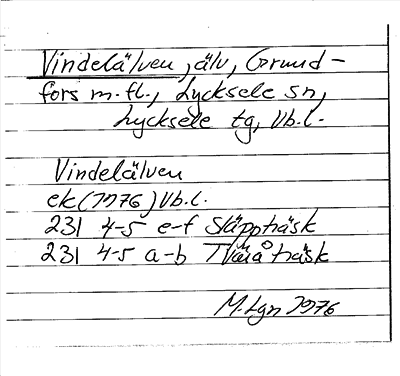 Vindelälven, älv, Grund-
fors m.fl., Lycksele sn,
Lycksele tg, Vb.l.
Vindelälven
ek (1976) Vb.l.
231 4-5 e-f Släppträsk
231 4-5 a-b
M.Lgn 1976